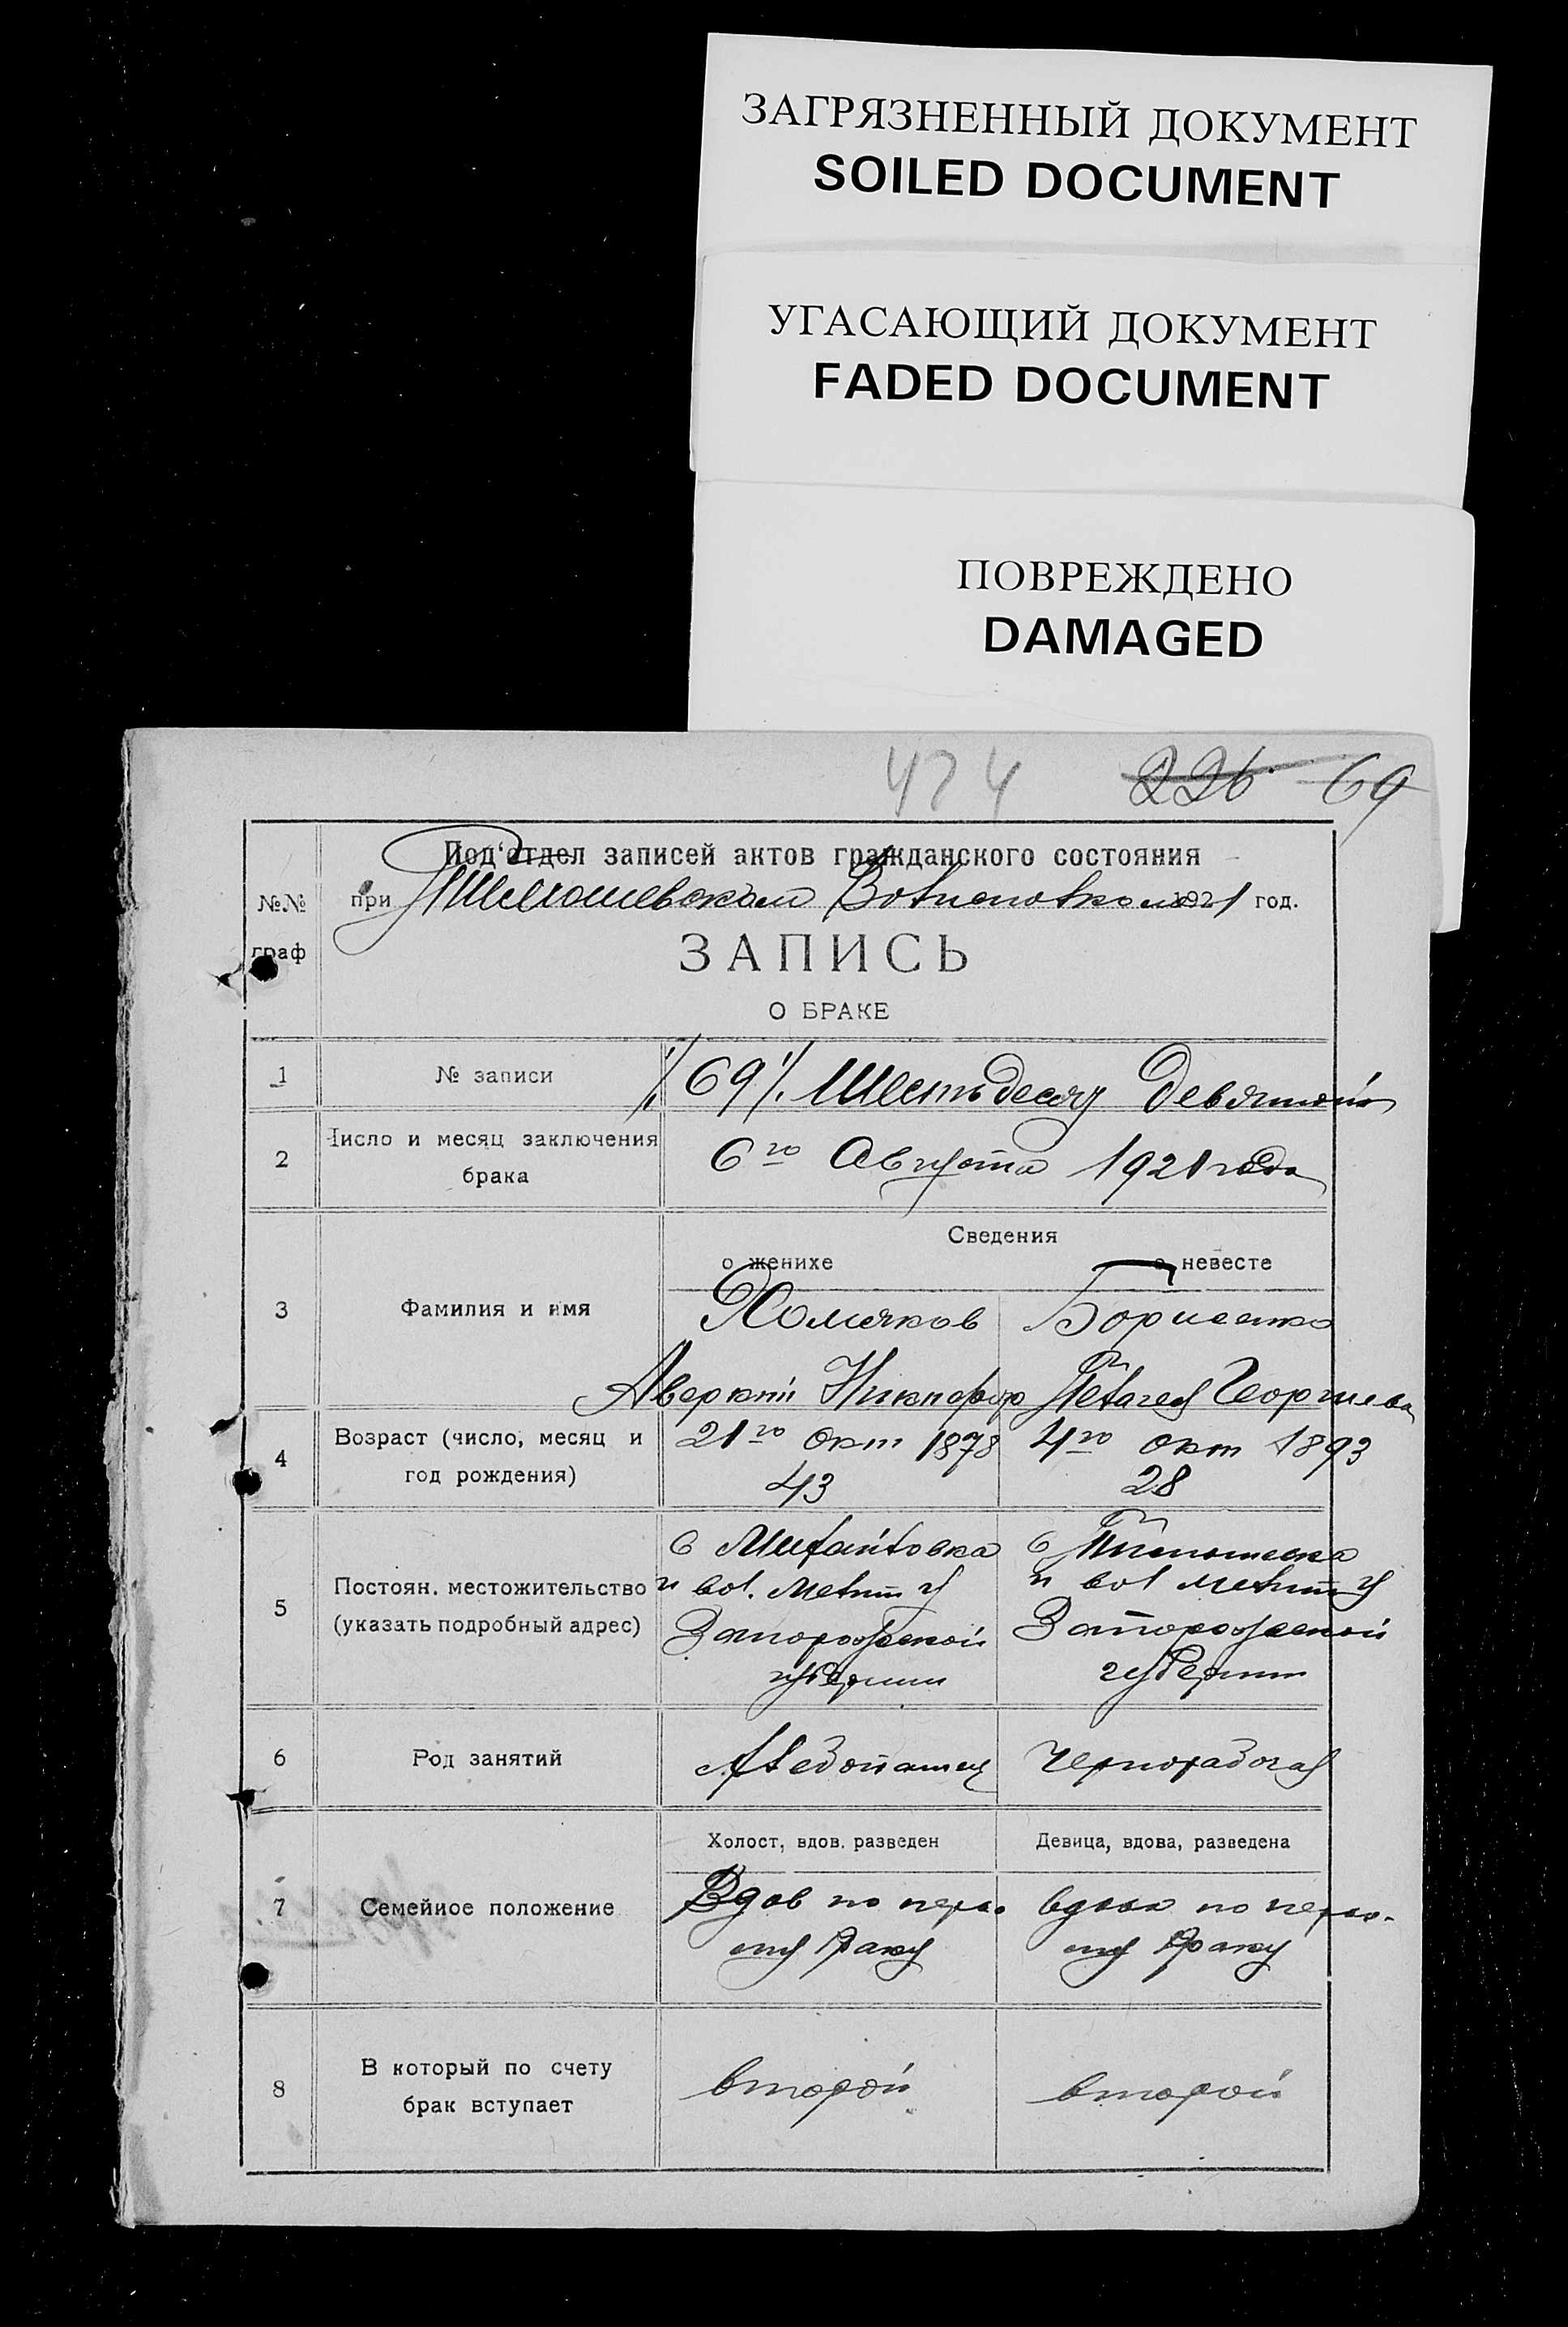 ЗАГРЯЗНЕННЫЙ ДОКУМЕНТ
SOILED DOCUMENT
УГАСАЮЩИЙ ДОКУМЕНТ
FADED DOCUMENT
ПОВРЕЖДЕНО
DAMAGED
474 226 69
Под'отдел записей актов гражданского состояния
№№ при 1921 год.
граф
ЗАПИСЬ
О БРАКЕ
1 № записи 69 Шестьдесят Девятый
2 Число и месяц заключения
брака
6го Августа 1921 года
Сведения
о женихе о невесте
3 Фамилия и имя
Хомяков Борисенко
Аверкий Никифор Георгиева
4 Возраст (число, месяц и
год рождения)
21го окт 1878 4го окт 1893
43 28
5 Постоян. местожительство
(указать подробный адрес)
с Михайловка с
и вол. Мелит у и вол Мелит у
Запорожской Запорожской
губернии губернии
6 Род занятий
Хлебопашец Чернорабочая
Холост, вдов. разведен Девица, вдова, разведена
7 Семейное положение
Вдов по перво вдова по перво-
му браку му браку
8 В который по счету
брак вступает
второй второй